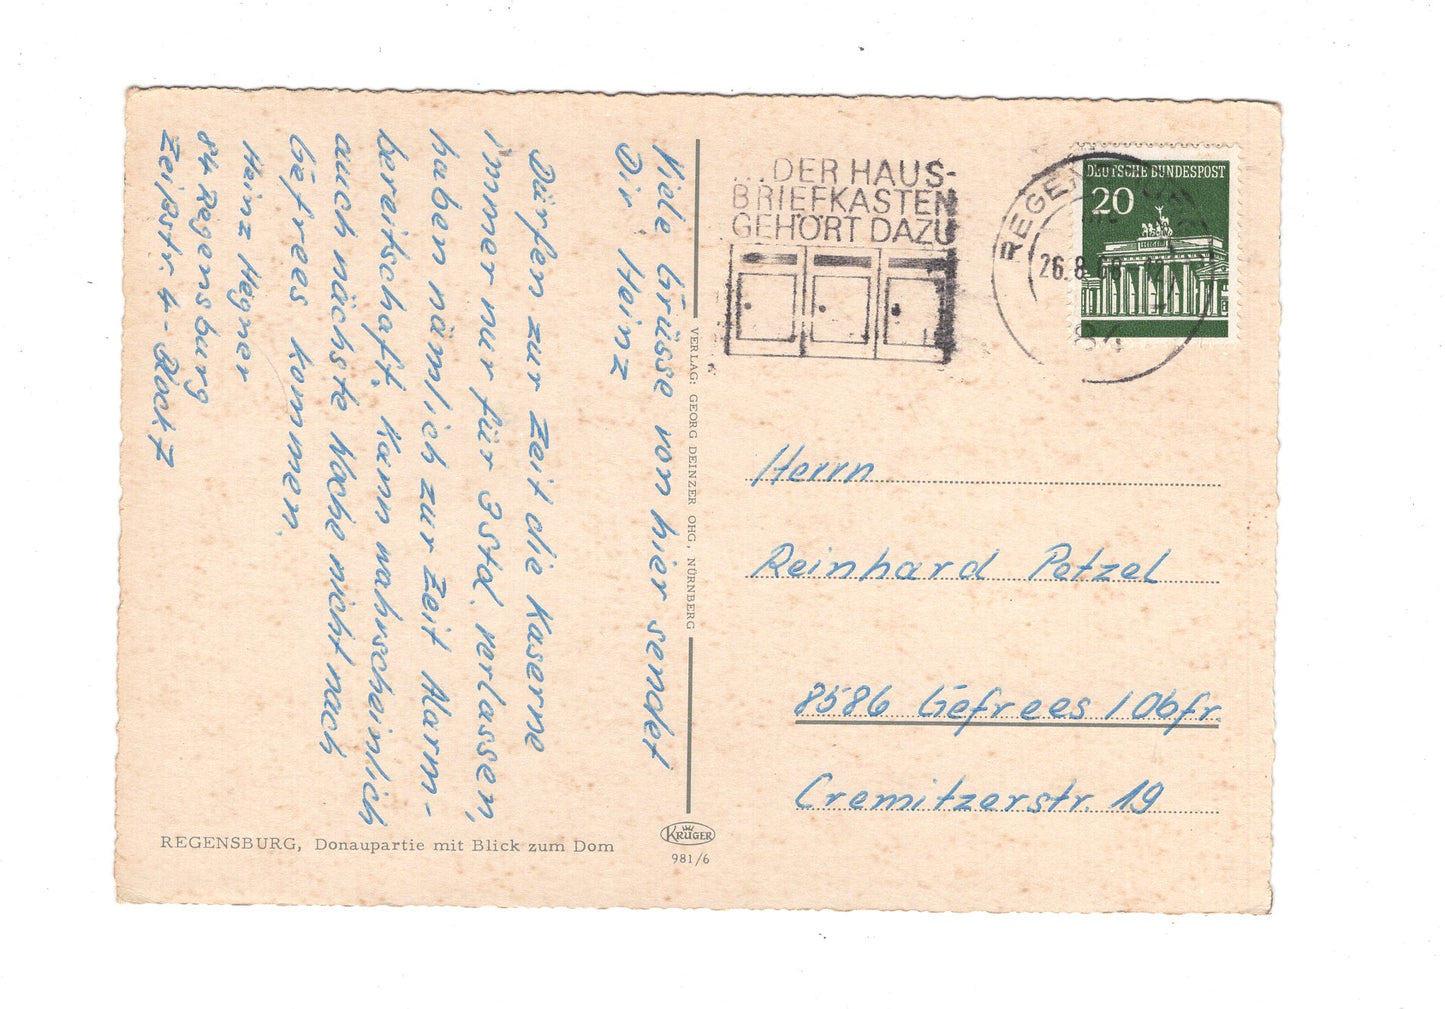 Viele Grüsse von hier sendet
Dir Heinz
Dürfen zur Zeit die Kaserne
immer nur für 3 Std. verlassen,
haben nämlich zur Zeit Alarm-
bereitschaft. Kann wahrscheinlich
auch nächste Woche nicht nach
Gefrees kommen.
Heinz Hegner
84 Regensburg
Zeißstr. 4 - Block 7
REGENSBURG, Donaupartie mit Blick zum Dom
VERLAG: GEORG DEINZER OHG, NÜRNBERG
KRÜGER
981/6
...DER HAUS-
BRIEFKASTEN
GEHÖRT DAZU
REGEN
26.8.68
84
DEUTSCHE BUNDESPOST
20
Herrn
Reinhard Petzel
8586 Gefrees / Obfr.
Cremitzerstr. 19